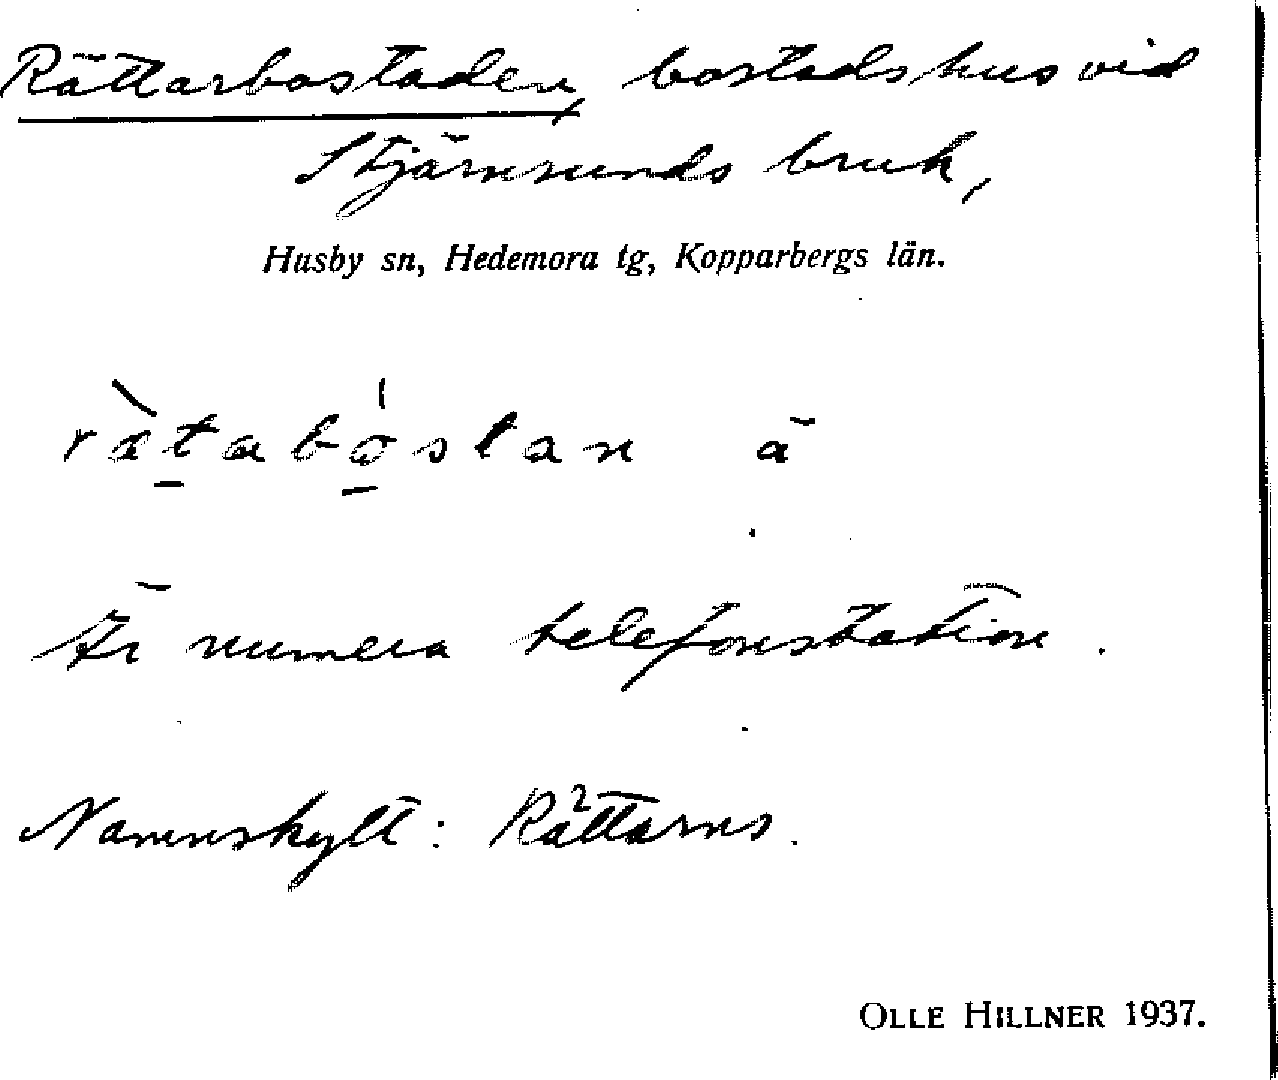 Rättarbostaden, bostadshus vid
Stjärnsunds bruk,
Husby sn, Hedemora tg, Kopparbergs län.
ä
Är numera telefonstation.
Namnskylt: Rättarns.
OLLE HILLNER 1937.